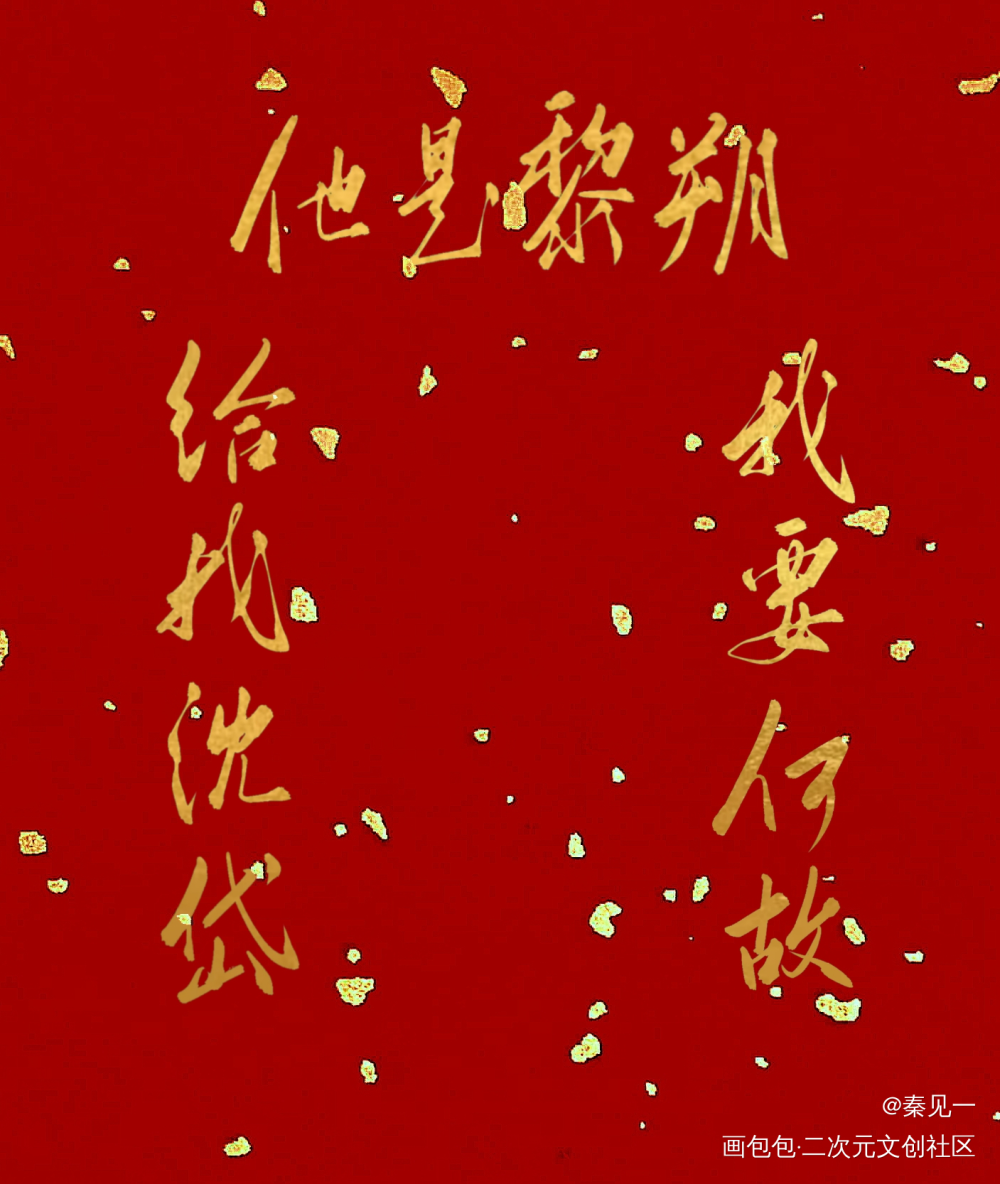 他是黎朔
我要何故
给我沈岱
@秦见一
画包包·二次元文创社区